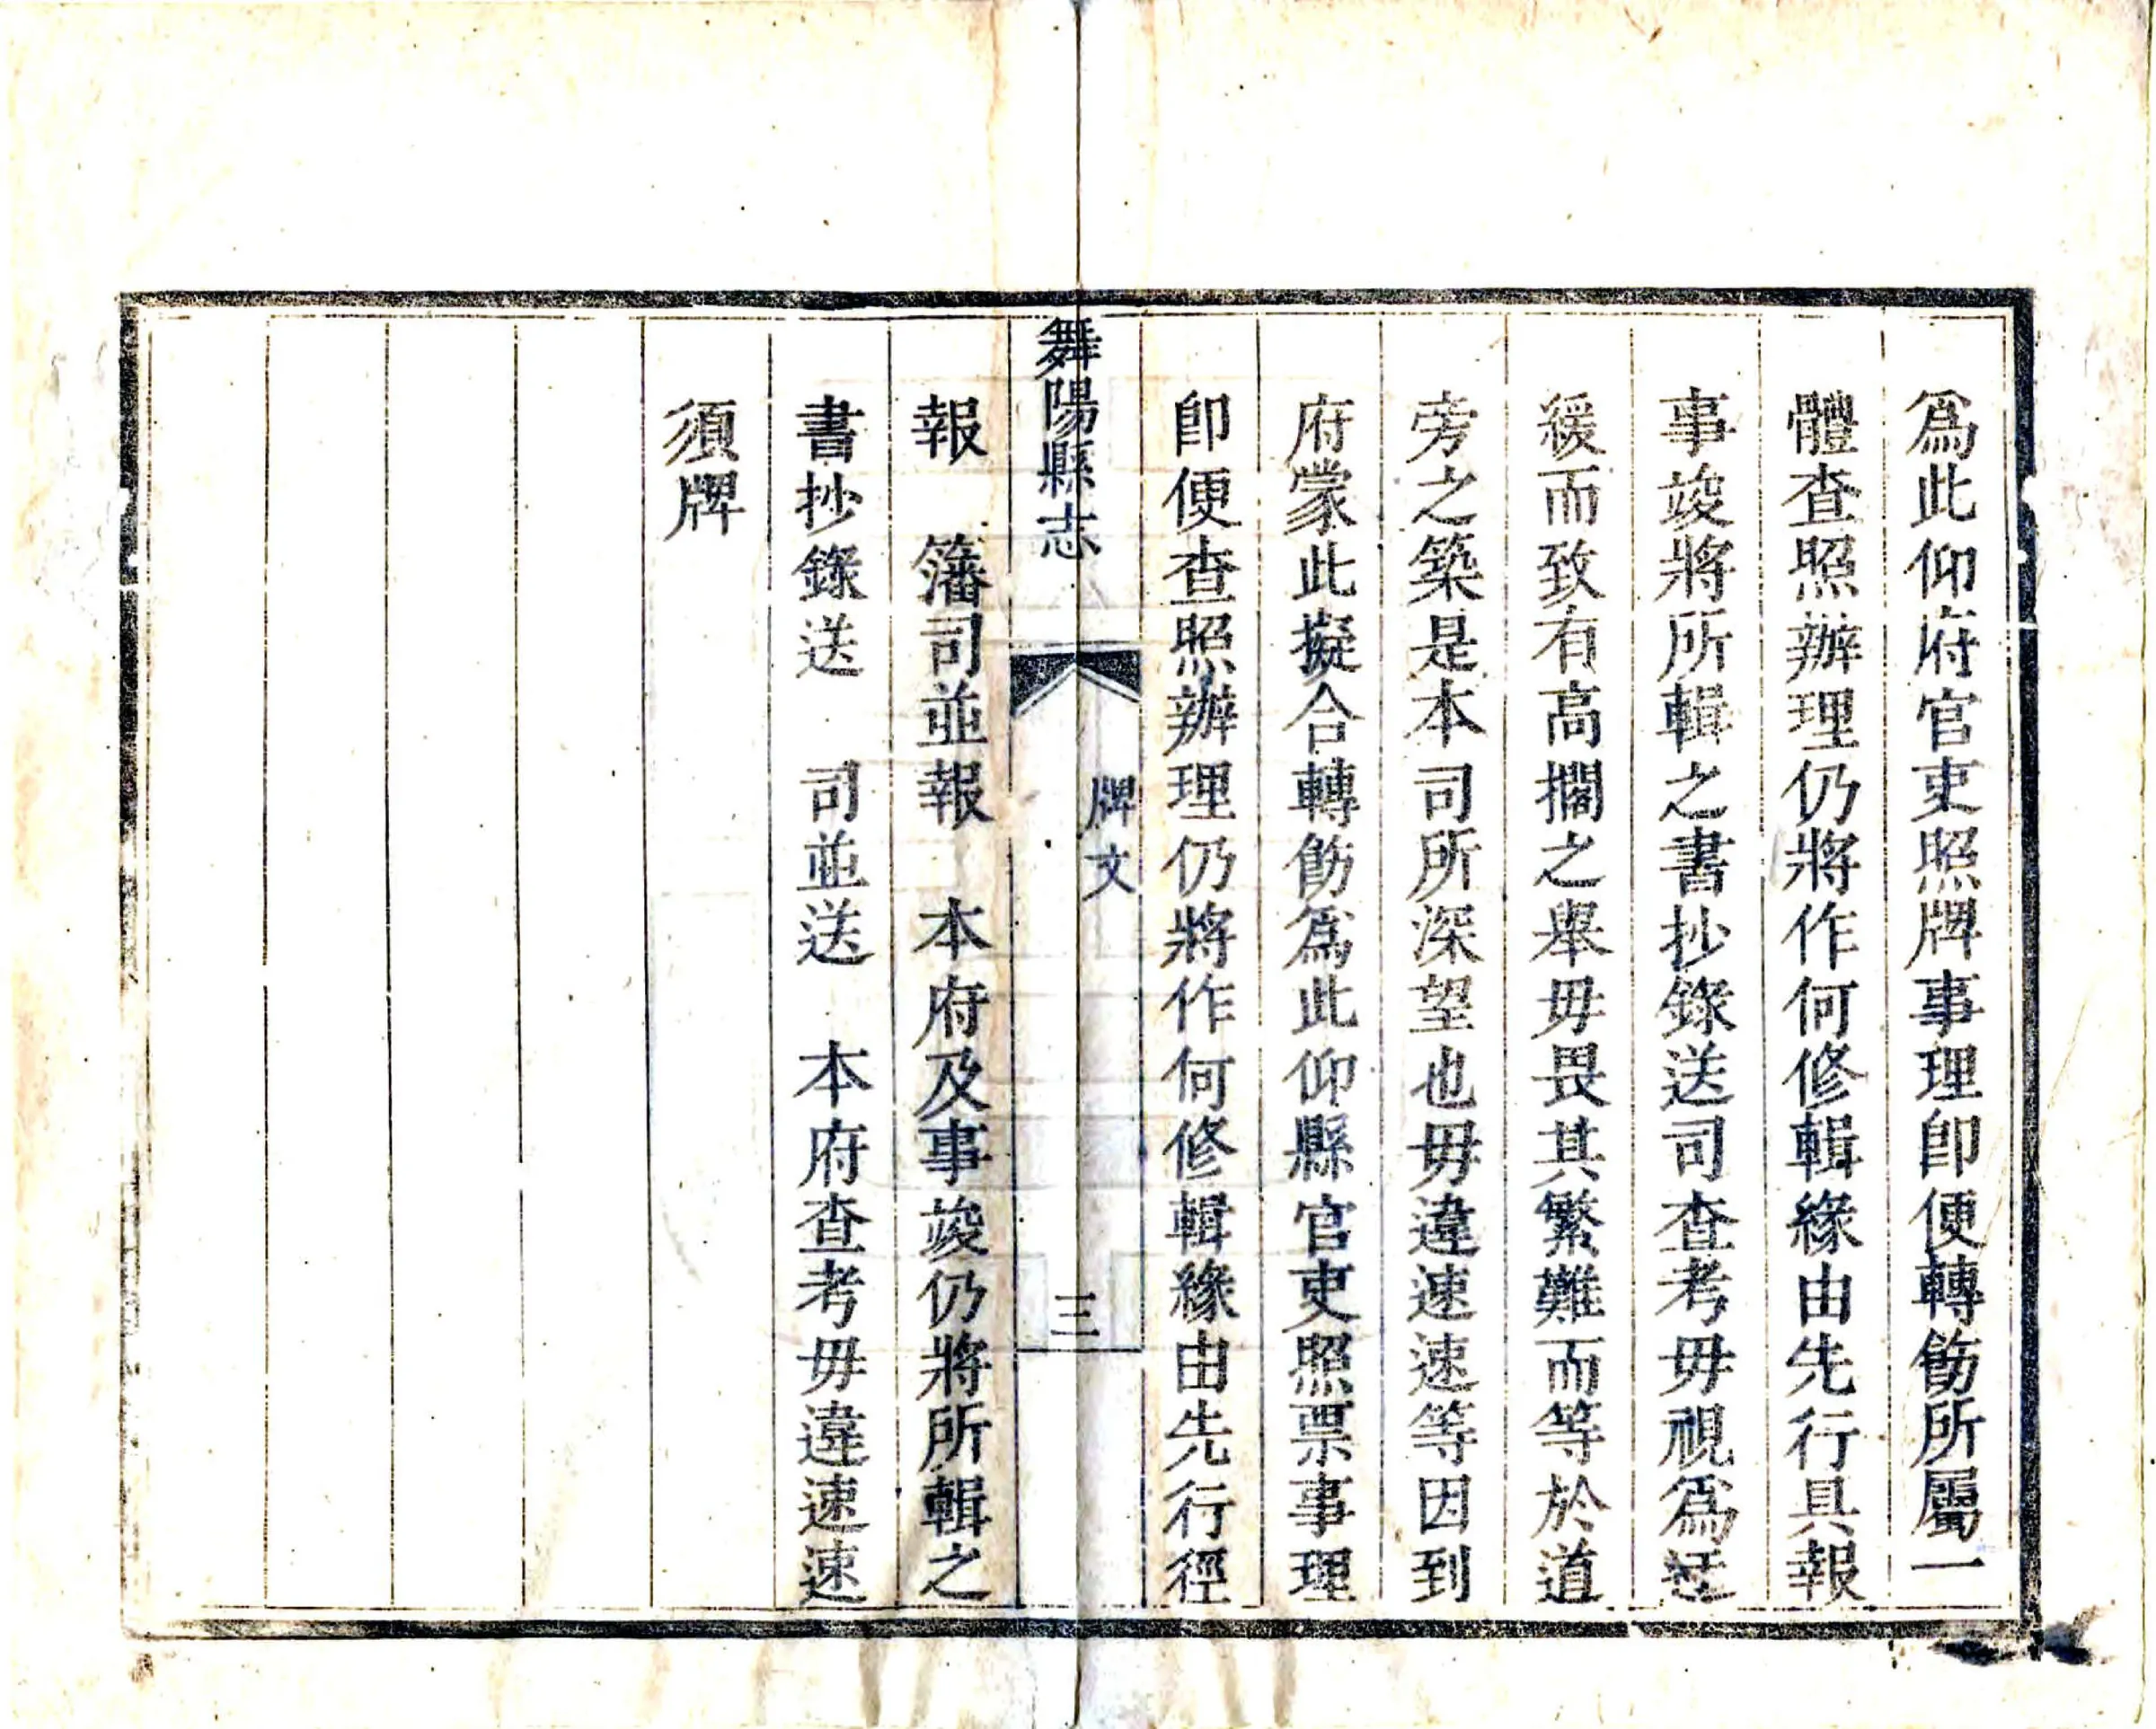 爲此仰府官吏照牌事理卽便轉飭所屬一
體查照辦理仍將作何修輯緣由先行具報
事竣將所輯之書抄錄送司查考毋視爲
緩而致有高擱之舉毋畏其繁難而等於道
旁之築是本司所深望也毋違速速等因到
府蒙此擬合轉飭爲此仰縣官吏照票事理
卽便查照辦理仍將作何修輯緣由先行徑
舞陽縣志 牌文 三
報 籓司並報 本府及事竣仍將所輯之
書抄錄送 司並送 本府查考毋違速速
須牌